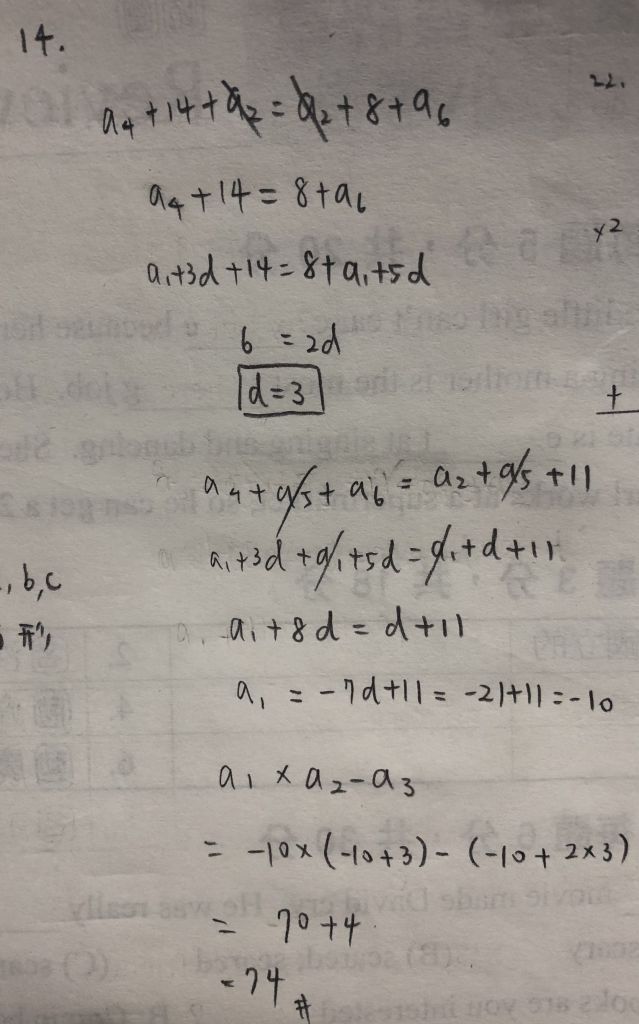 14.
22.
a₄+14+a₂=a₂+8+a₆
a₄+14=8+a₆
x2
a₁+3d+14=8+a₁+5d
6 =2d
d=3
+
a₄+a₅+a₆=a₂+a₅+11
a₁+3d+a₁+5d=a₁+d+11
, b,c
a₁+8d=d+11
a₁=-7d+11=-21+11=-10
a₁×a₂-a₃
=-10×(-10+3)-(-10+2×3)
= 70+4
=74 #